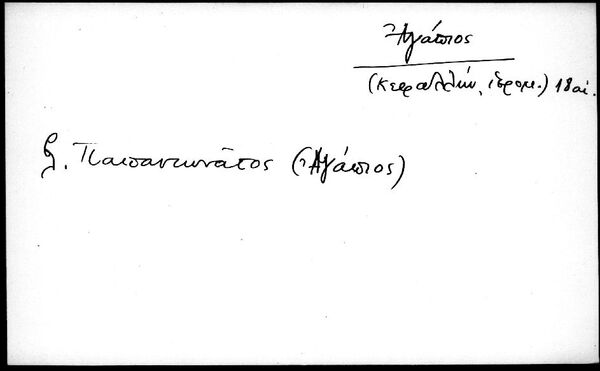 Ἀγάπιος
(Κεφαλλήν, ἱερομ.) 18 αἰ.
βλ. Παπαντωνᾶτος (Ἀγάπιος)